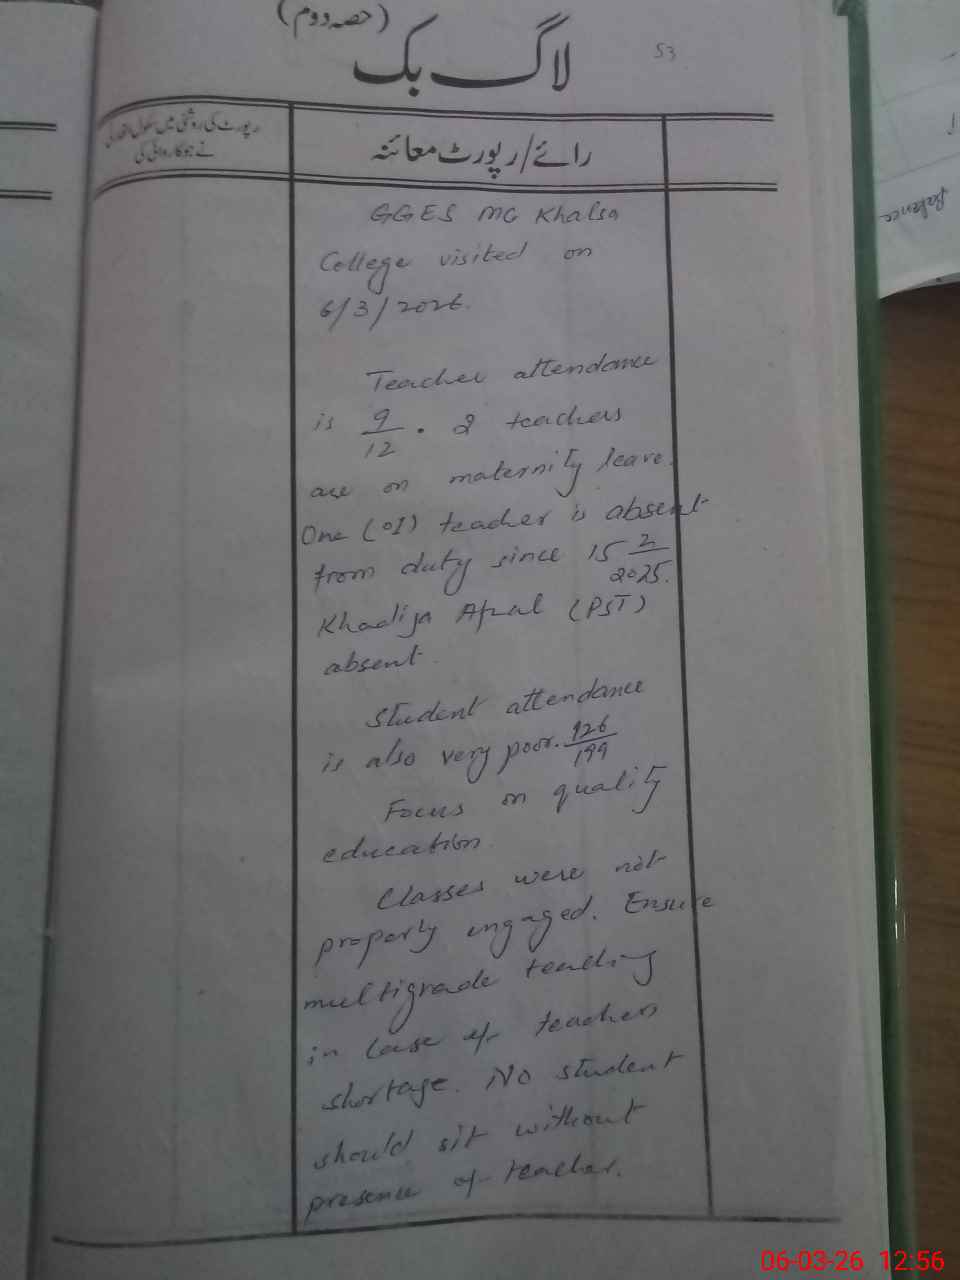 (حصہ دوم)
لاگ بک
53
رائے/رپورٹ معائنہ
رپورٹ کی روشنی میں سکول اتھارٹی
نے جو کاروائی کی
GGES MC Khalsa
College visited on
6/3/2026.
Teacher attendance
is 9/12. 2 teachers
are on maternity leave.
One (01) teacher is absent
from duty since 15 2/2025.
Khadija Afzal (PST)
absent.
Student attendance
is also very poor. 126/199
Focus on quality
education.
Classes were not
properly engaged. Ensure
multigrade teaching
in case of teachers
shortage. No student
should sit without
presence of teacher.
Balance
06-03-26 12:56